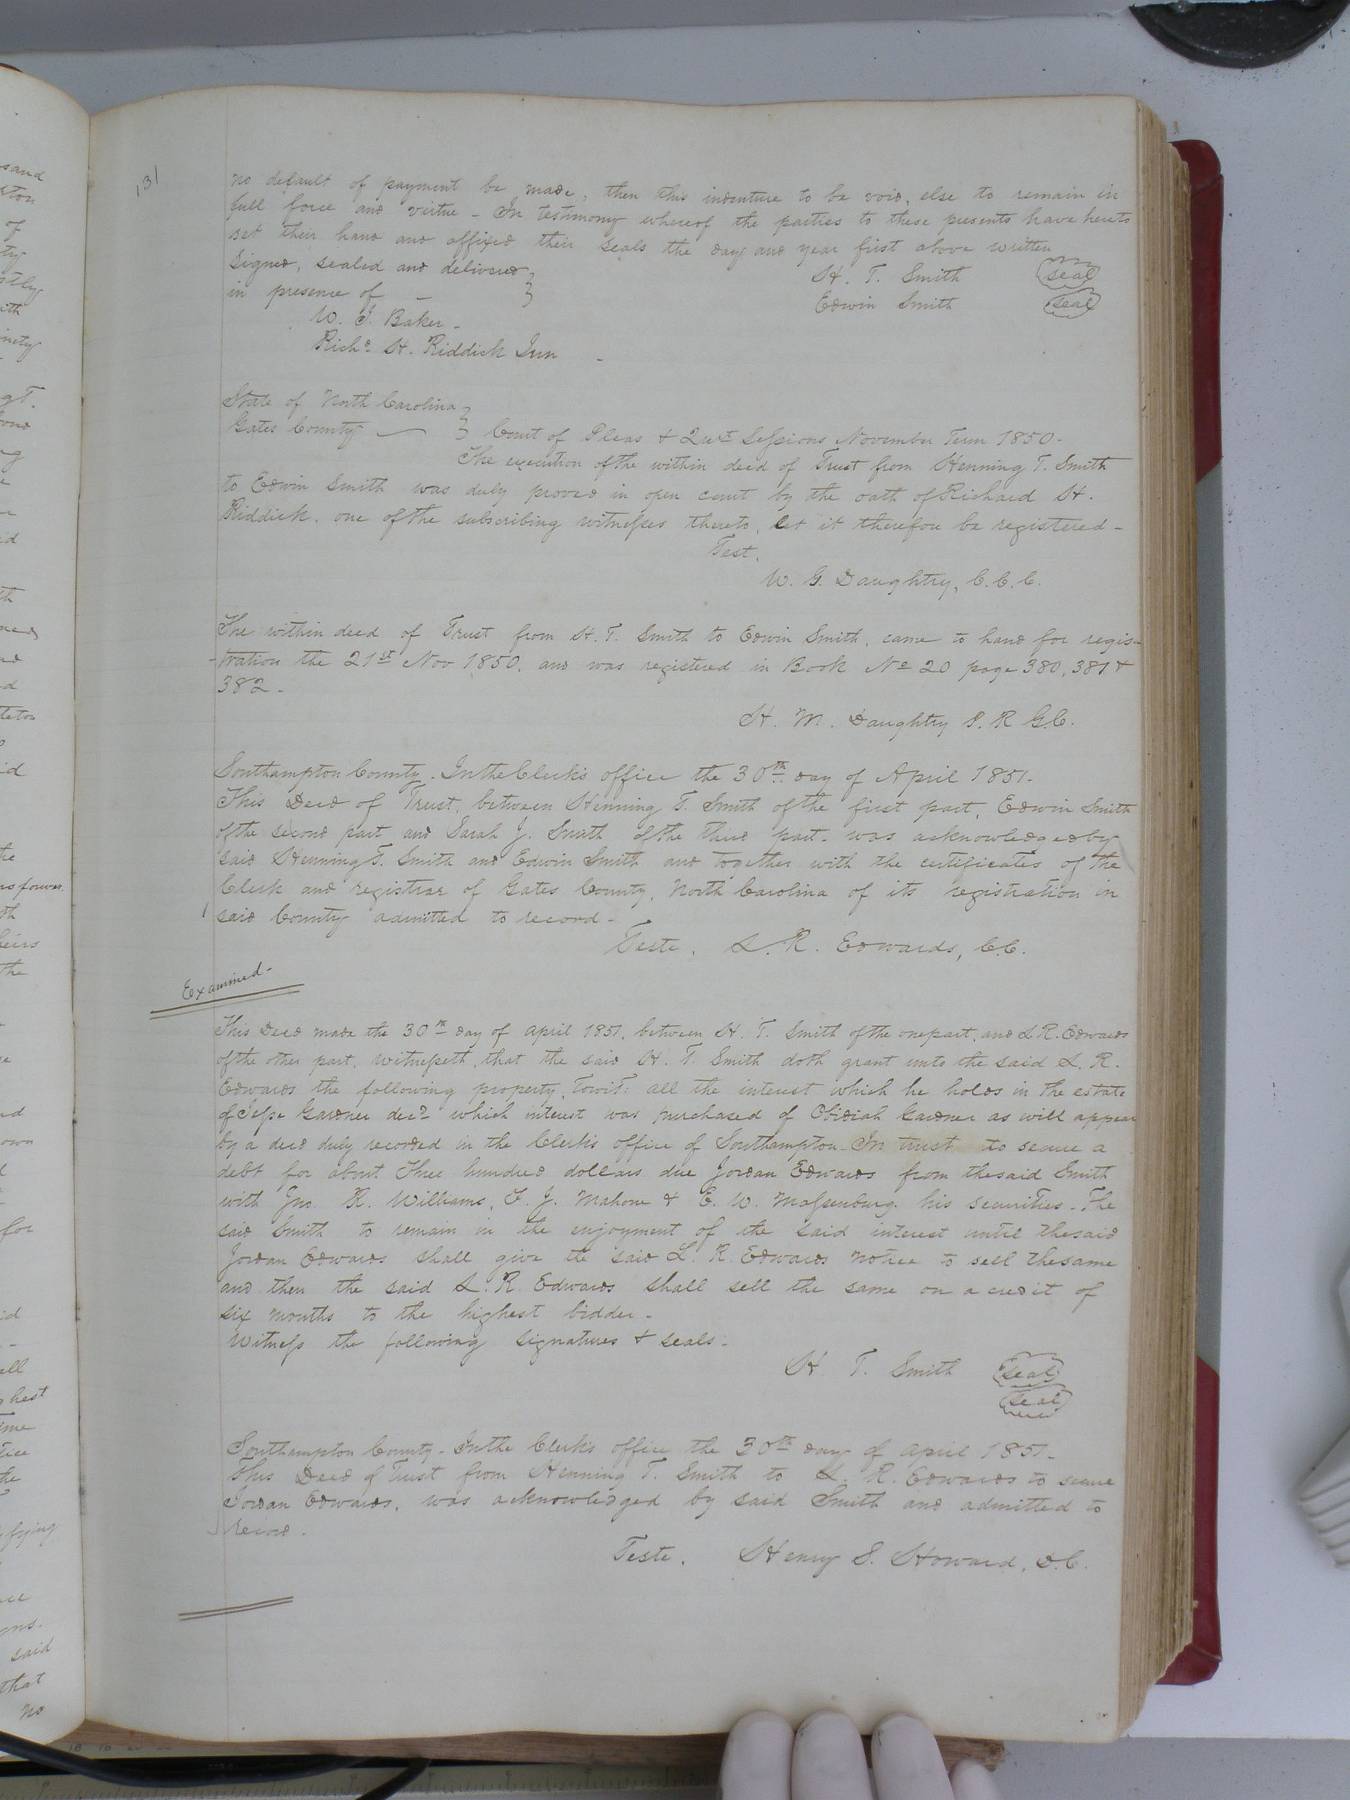 131
no default of payment be made, then this indenture to be void, else to remain in
full force and virtue - In testimony whereof the parties to these presents have hereto
set their hand and affixed their seals the day and year first above written
Signed, sealed and delivered }
in presence of _ }
H. T. Smith seal
Edwin Smith seal
W. J. Baker -
Richd. H. Riddick Jun -
State of North Carolina }
Gates County — } Court of Pleas & Qurt Sessions November Term 1850-
The execution of the within deed of Trust from Henning T. Smith
to Edwin Smith was duly proved in open court by the oath of Richard H.
Riddick, one of the subscribing witnesses thereto, let it therefore be registered -
Test,
W. G. Daughtry, C.C.C.
The within deed of Trust from H. T. Smith to Edwin Smith, came to hand for regis-
-tration the 21st Nov 1850, and was registered in Book No 20 page 380, 381 &
382 -
H. M. Daughtry P. R G.C.
Southampton County. In the Clerk's office the 30th day of April 1851-
This Deed of Trust, between Henning T. Smith of the first part, Edwin Smith
of the second part and Sarah J. Smith of the third part - was acknowledged by
said Henning T. Smith and Edwin Smith and together with the certificates of the
Clerk and registrar of Gates County, North Carolina of its registration in
said County admitted to record -
Teste, L. R. Edwards, C.C.
Examined -
This Deed made the 30th day of April 1851, between H. T. Smith of the one part, and L R. Edwards
of the other part, Witnesseth, that the said H. T. Smith doth grant unto the said L. R.
Edwards the following property, Towit: all the interest which he holds in the estate
of Jesse Gardner decd which interest was purchased of Obidiah Gardner as will appear
by a deed duly recorded in the Clerk's office of Southampton - In trust to secure a
debt for about Three hundred dollars due Jordan Edwards from the said Smith
with Jno. R. Williams, C. J. Mahone & E. W. Massenburg his securities - The
said Smith to remain in the enjoyment of the said interest until the said
Jordan Edwards shall give the said L. R. Edwards notice to sell the same
and then the said L. R. Edwards shall sell the same on a credit of
six months to the highest bidder -
Witness the following signatures & seals -
H T. Smith seal
seal
Southampton County - In the Clerk's office the 30th day of April 1851 -
This Deed of Trust from Henning T. Smith to L. R. Edwards to secure
Jordan Edwards, was acknowledged by said Smith and admitted to
record.
Teste, Henry S. Howard, D.C.